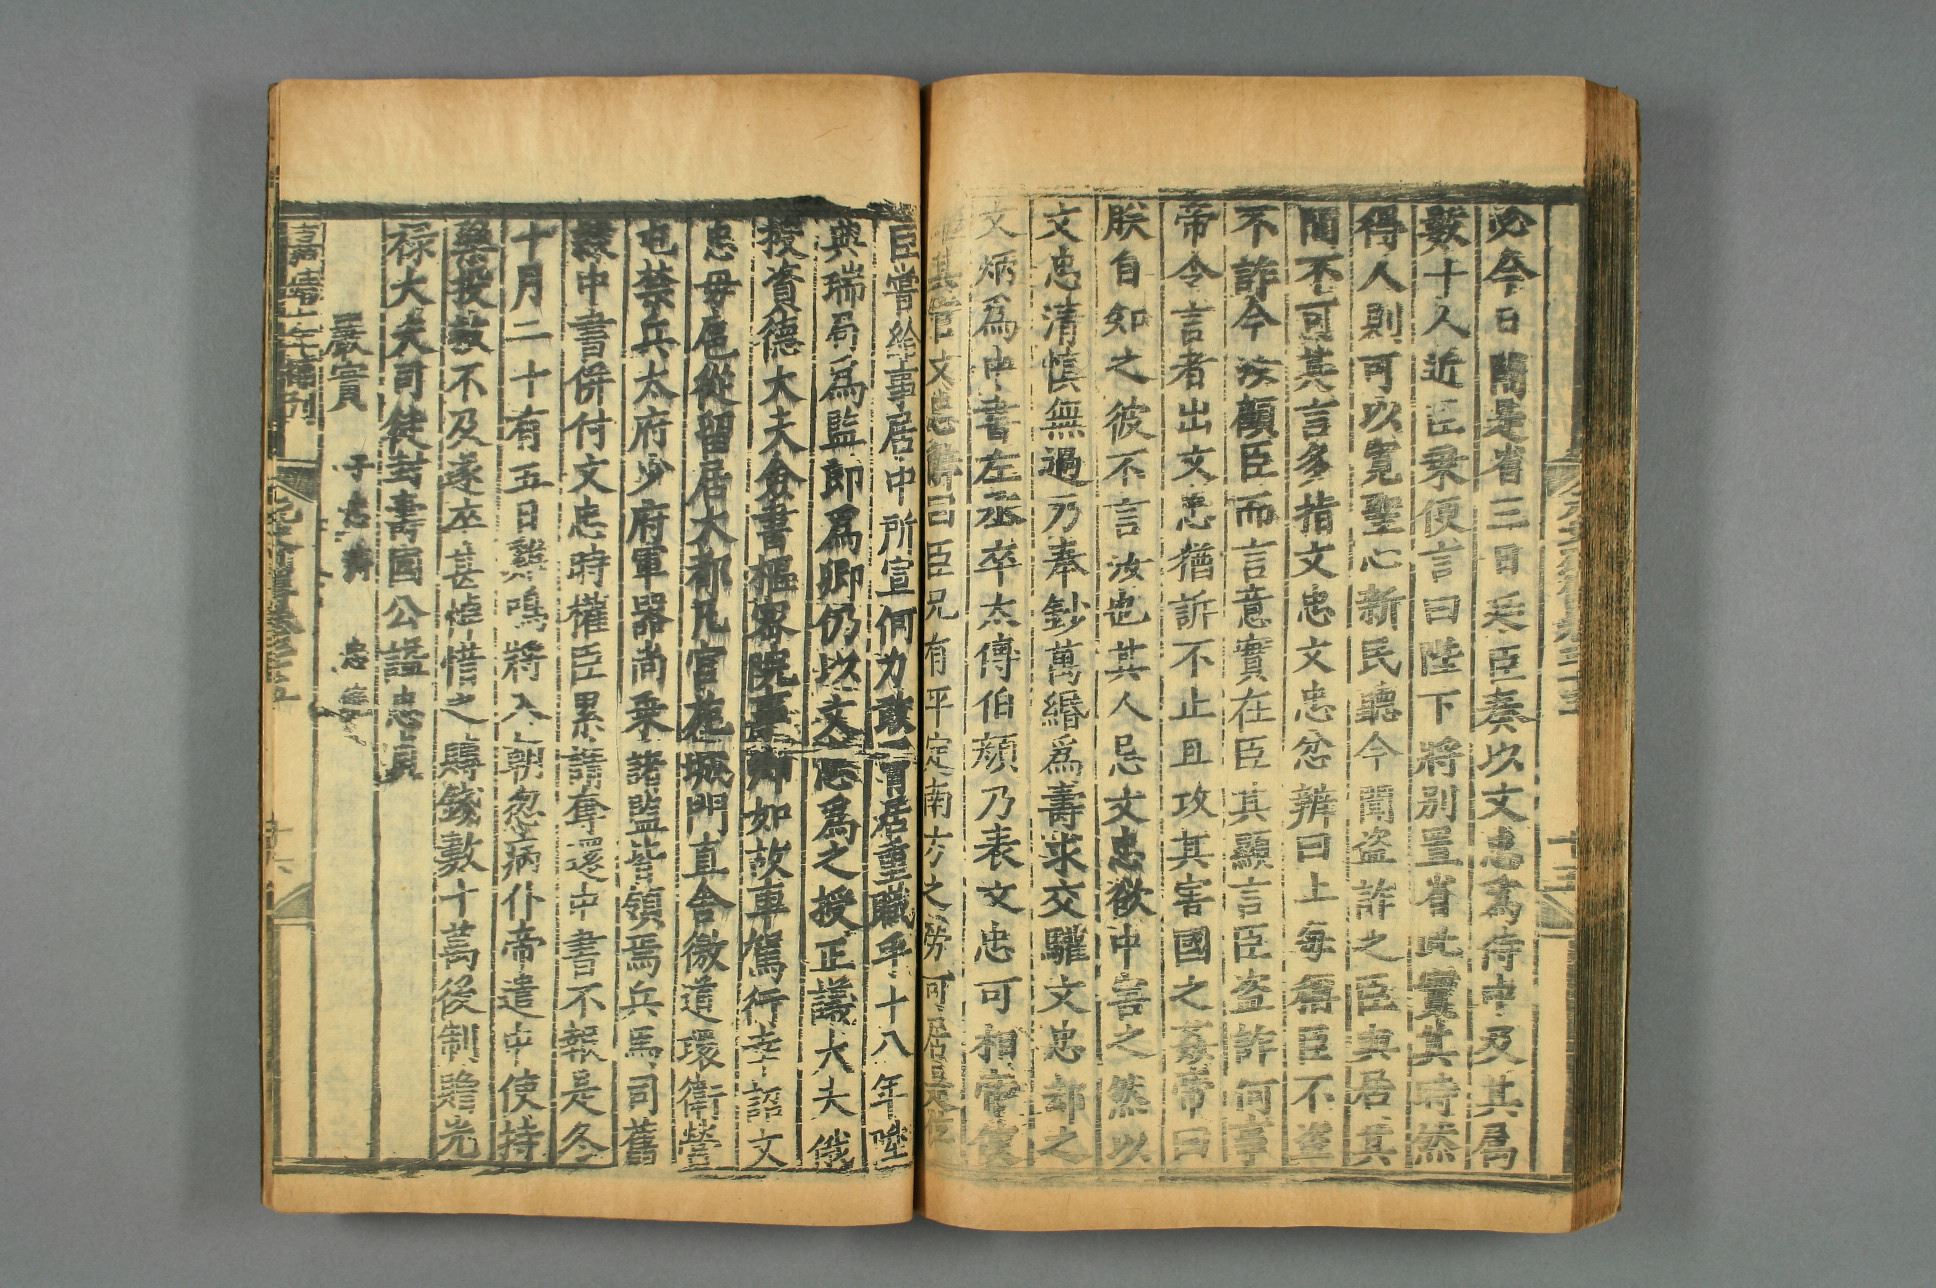 必今日聞是省三日廷臣奏以文忠爲侍中及其屬
數十人近臣乗便言曰陛下將别置省此實其時然
得人則可以寬聖心新民聽今聞盗詐之臣與居其
間不可其言多指文忠文忠忿辨曰上每稱臣不盗
不詐今汝顧臣而言意實在臣其顯言臣盗詐何事
帝令言者出文忠猶訴不止且攻其害國之姦帝曰
朕自知之彼不言汝也其人忌文忠欲中害之然以
文忠清慎無過乃奉鈔萬緡爲壽求交驩文忠却之
文炳爲中書左丞卒太傅伯顔乃表文忠可相帝使
文忠辭曰臣兄有平定南方之勞可居是位
臣嘗給事居中所宣何力敢冒居重職乎十八年陞
典瑞局爲監郎爲卿仍以文忠爲之授正議大夫俄
授資德大夫僉書樞密院事卿如故車駕行幸詔文
忠毋扈從留居大都凡宫苑城門直舍徼道環衛營
屯禁兵太府少府軍器尚乗諸監皆領焉兵馬司舊
隷中書併付文忠時權臣累請奪還中書不報是冬
十月二十有五日雞鳴將入朝忽病仆帝遣中使持
藥投救不及遂卒甚悼惜之賻錢數十萬後制贈光
禄大夫司徒封壽國公諡忠貞
嚴實 子忠濟 忠嗣